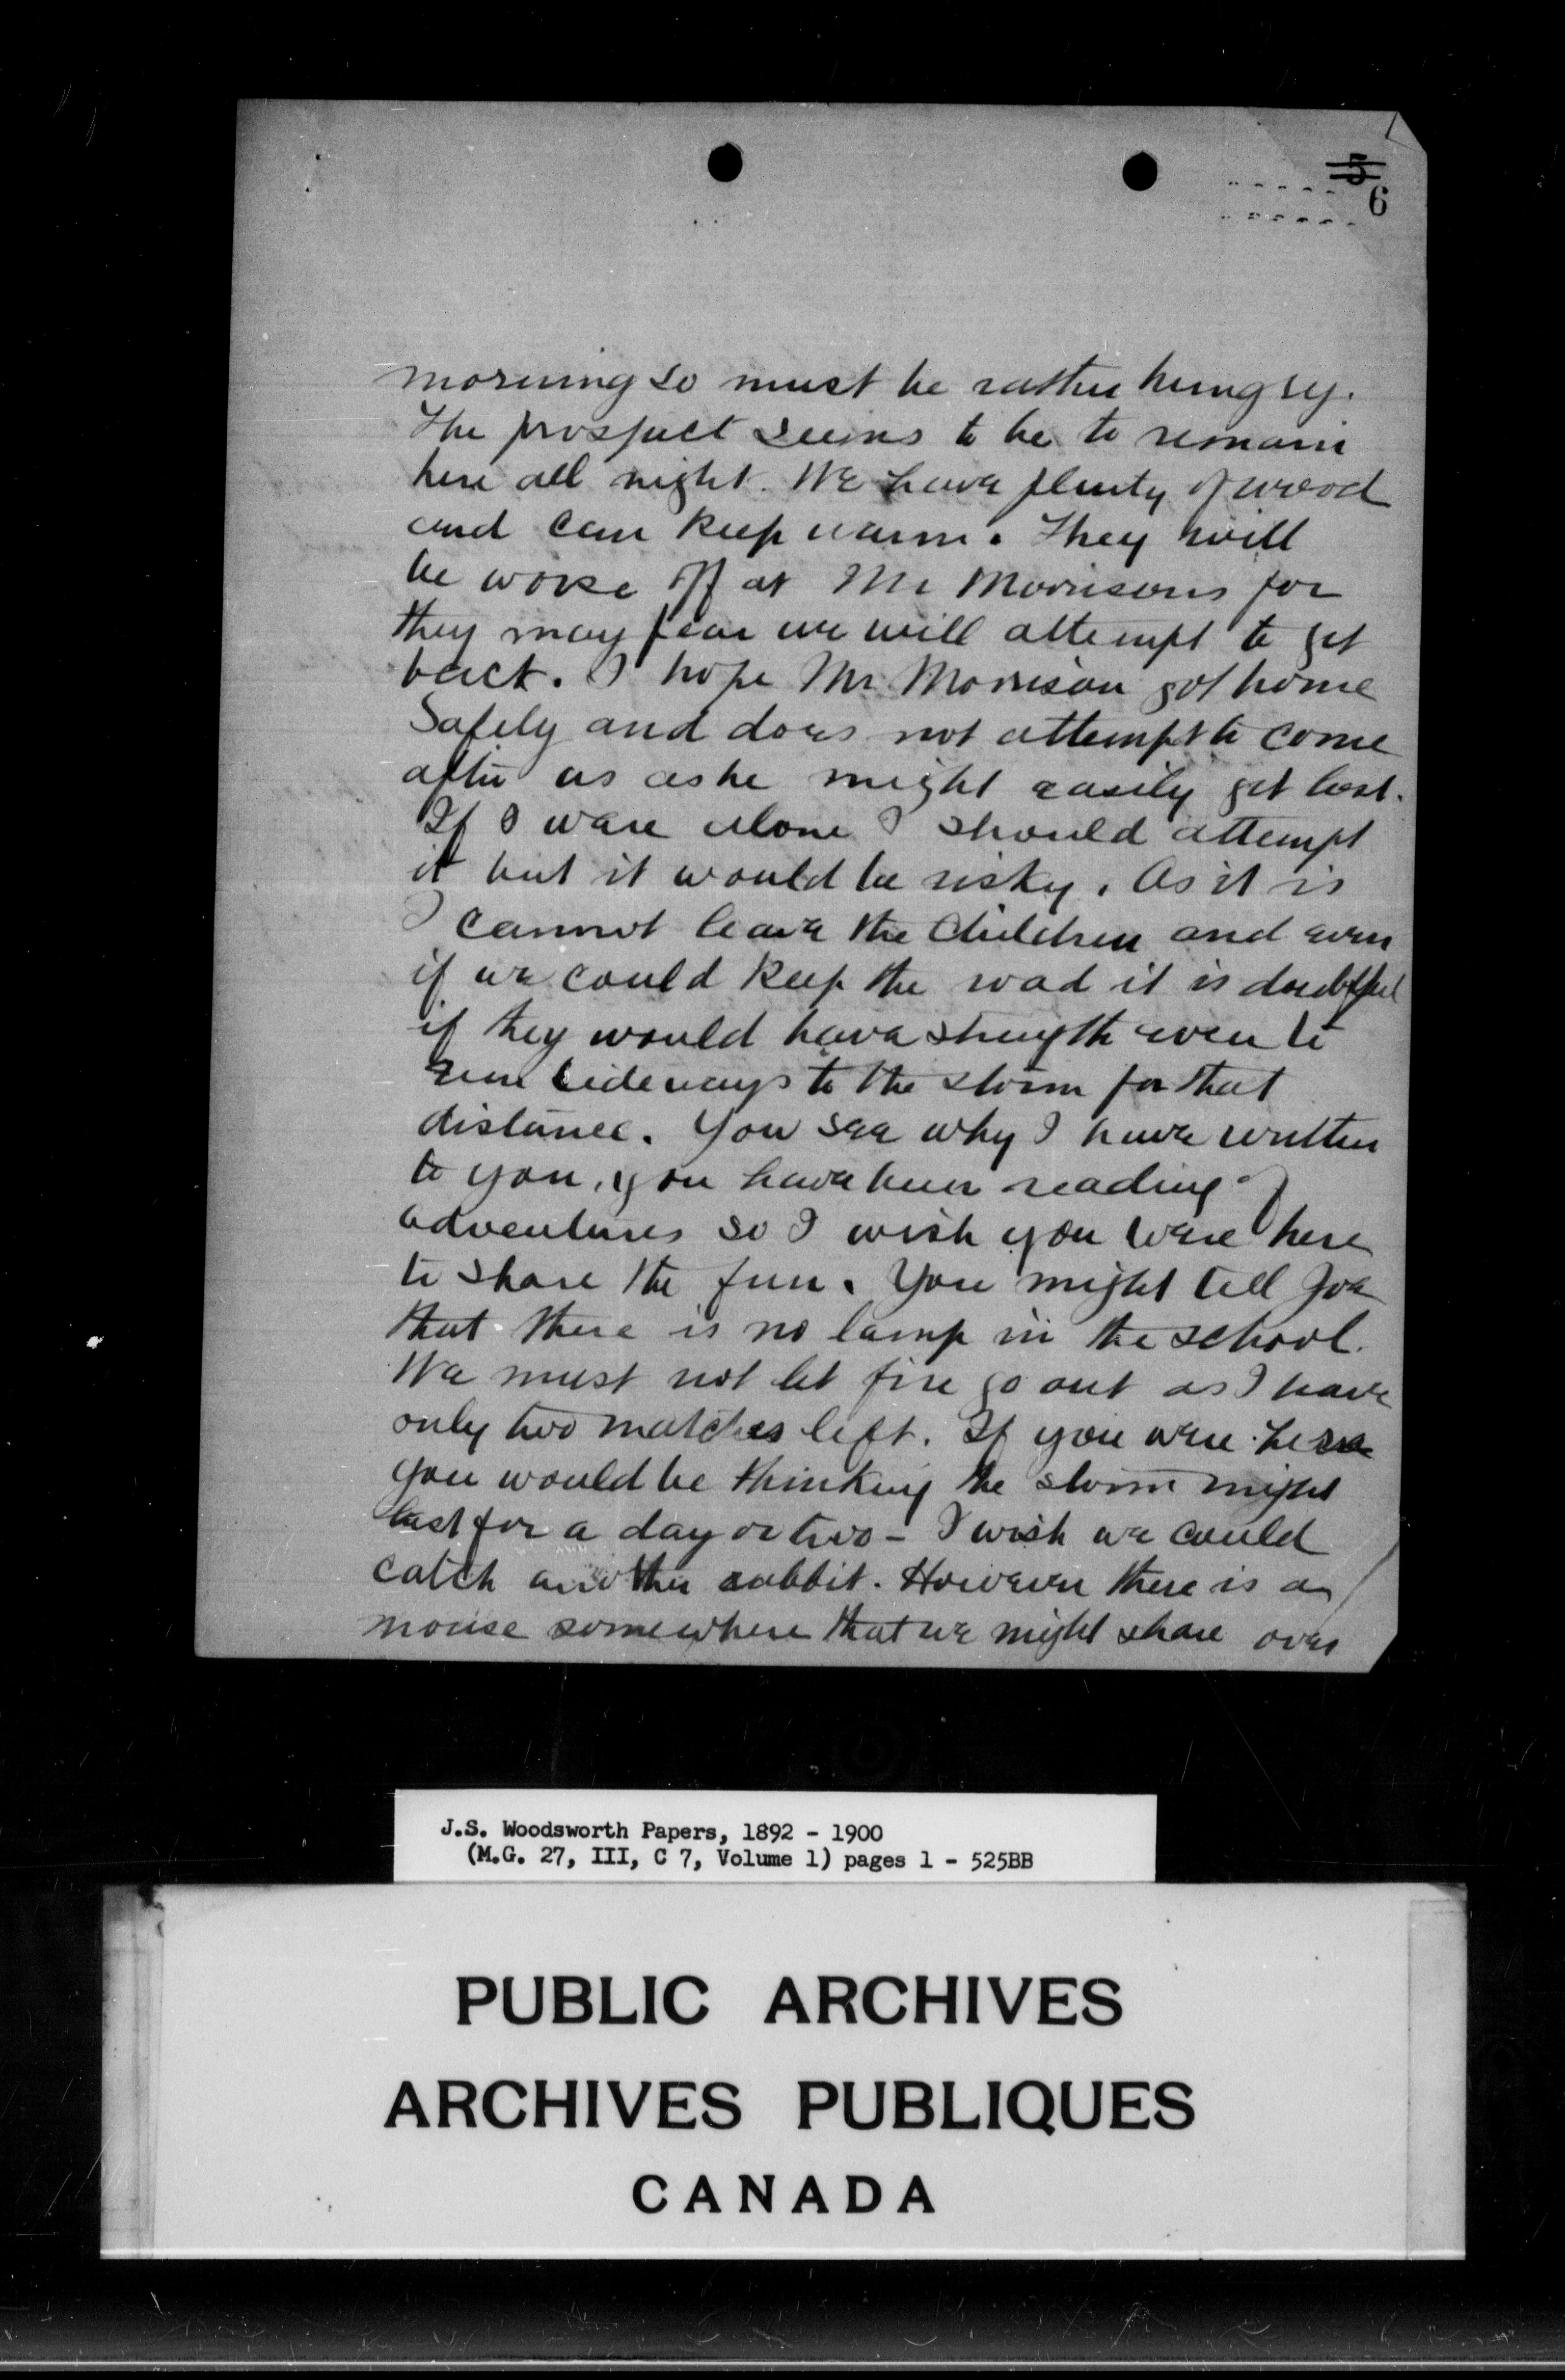 5
6
morning so must be rather hungry.
The prospect seems to be to remain
here all night. We have plenty of wood
and can keep warm. They will
be worse off at Mr Morrisons for
they may fear we will attempt to get
back. I hope Mr. Morrison got home
Safely and does not attempt to come
after us as he might easily get lost.
If I ware alone I should attempt
it but it would be risky. As it is
I cannot leave the Children and even
if we could keep the road it is doubtful
if they would have strength even to
run sideways to the storm for that
distance. You see why I have written
to you, you have been reading of
adventures so I wish you were here
to share the fun. You might tell Joe
that there is no lamp in the school.
We must not let fire go out as I have
only two matches left. If you were here
you would be thinking the storm might
last for a day or two - I wish we could
catch another rabbit. However there is a
mouse somewhere that we might share over
J.S. Woodsworth Papers, 1892 - 1900
(M.G. 27, III, C 7, Volume 1) pages 1 - 525BB
PUBLIC ARCHIVES
ARCHIVES PUBLIQUES
CANADA